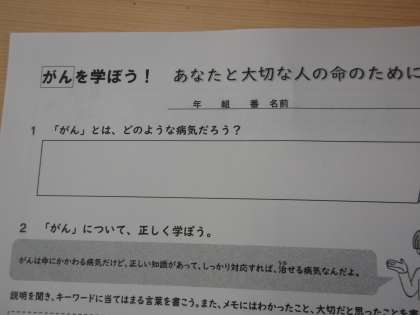 がんを学ぼう！ あなたと大切な人の命のために
年 組 番 名前
1 「がん」とは、どのような病気だろう？
2 「がん」について、正しく学ぼう。
がんは命にかかわる病気だけど、正しい知識があって、しっかり対応すれば、治せる病気なんだよ。
説明を聞き、キーワードに当てはまる言葉を書こう。また、メモにはわかったこと、大切だと思ったことを